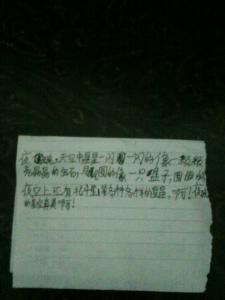 夜晚,天空中星星一闪一闪的像一颗颗
亮晶晶的宝石,圆圆的像一只盘子,圆圆的
夜空上还有北斗星等各种各样的星星,啊!夜晚
的星空真美啊!